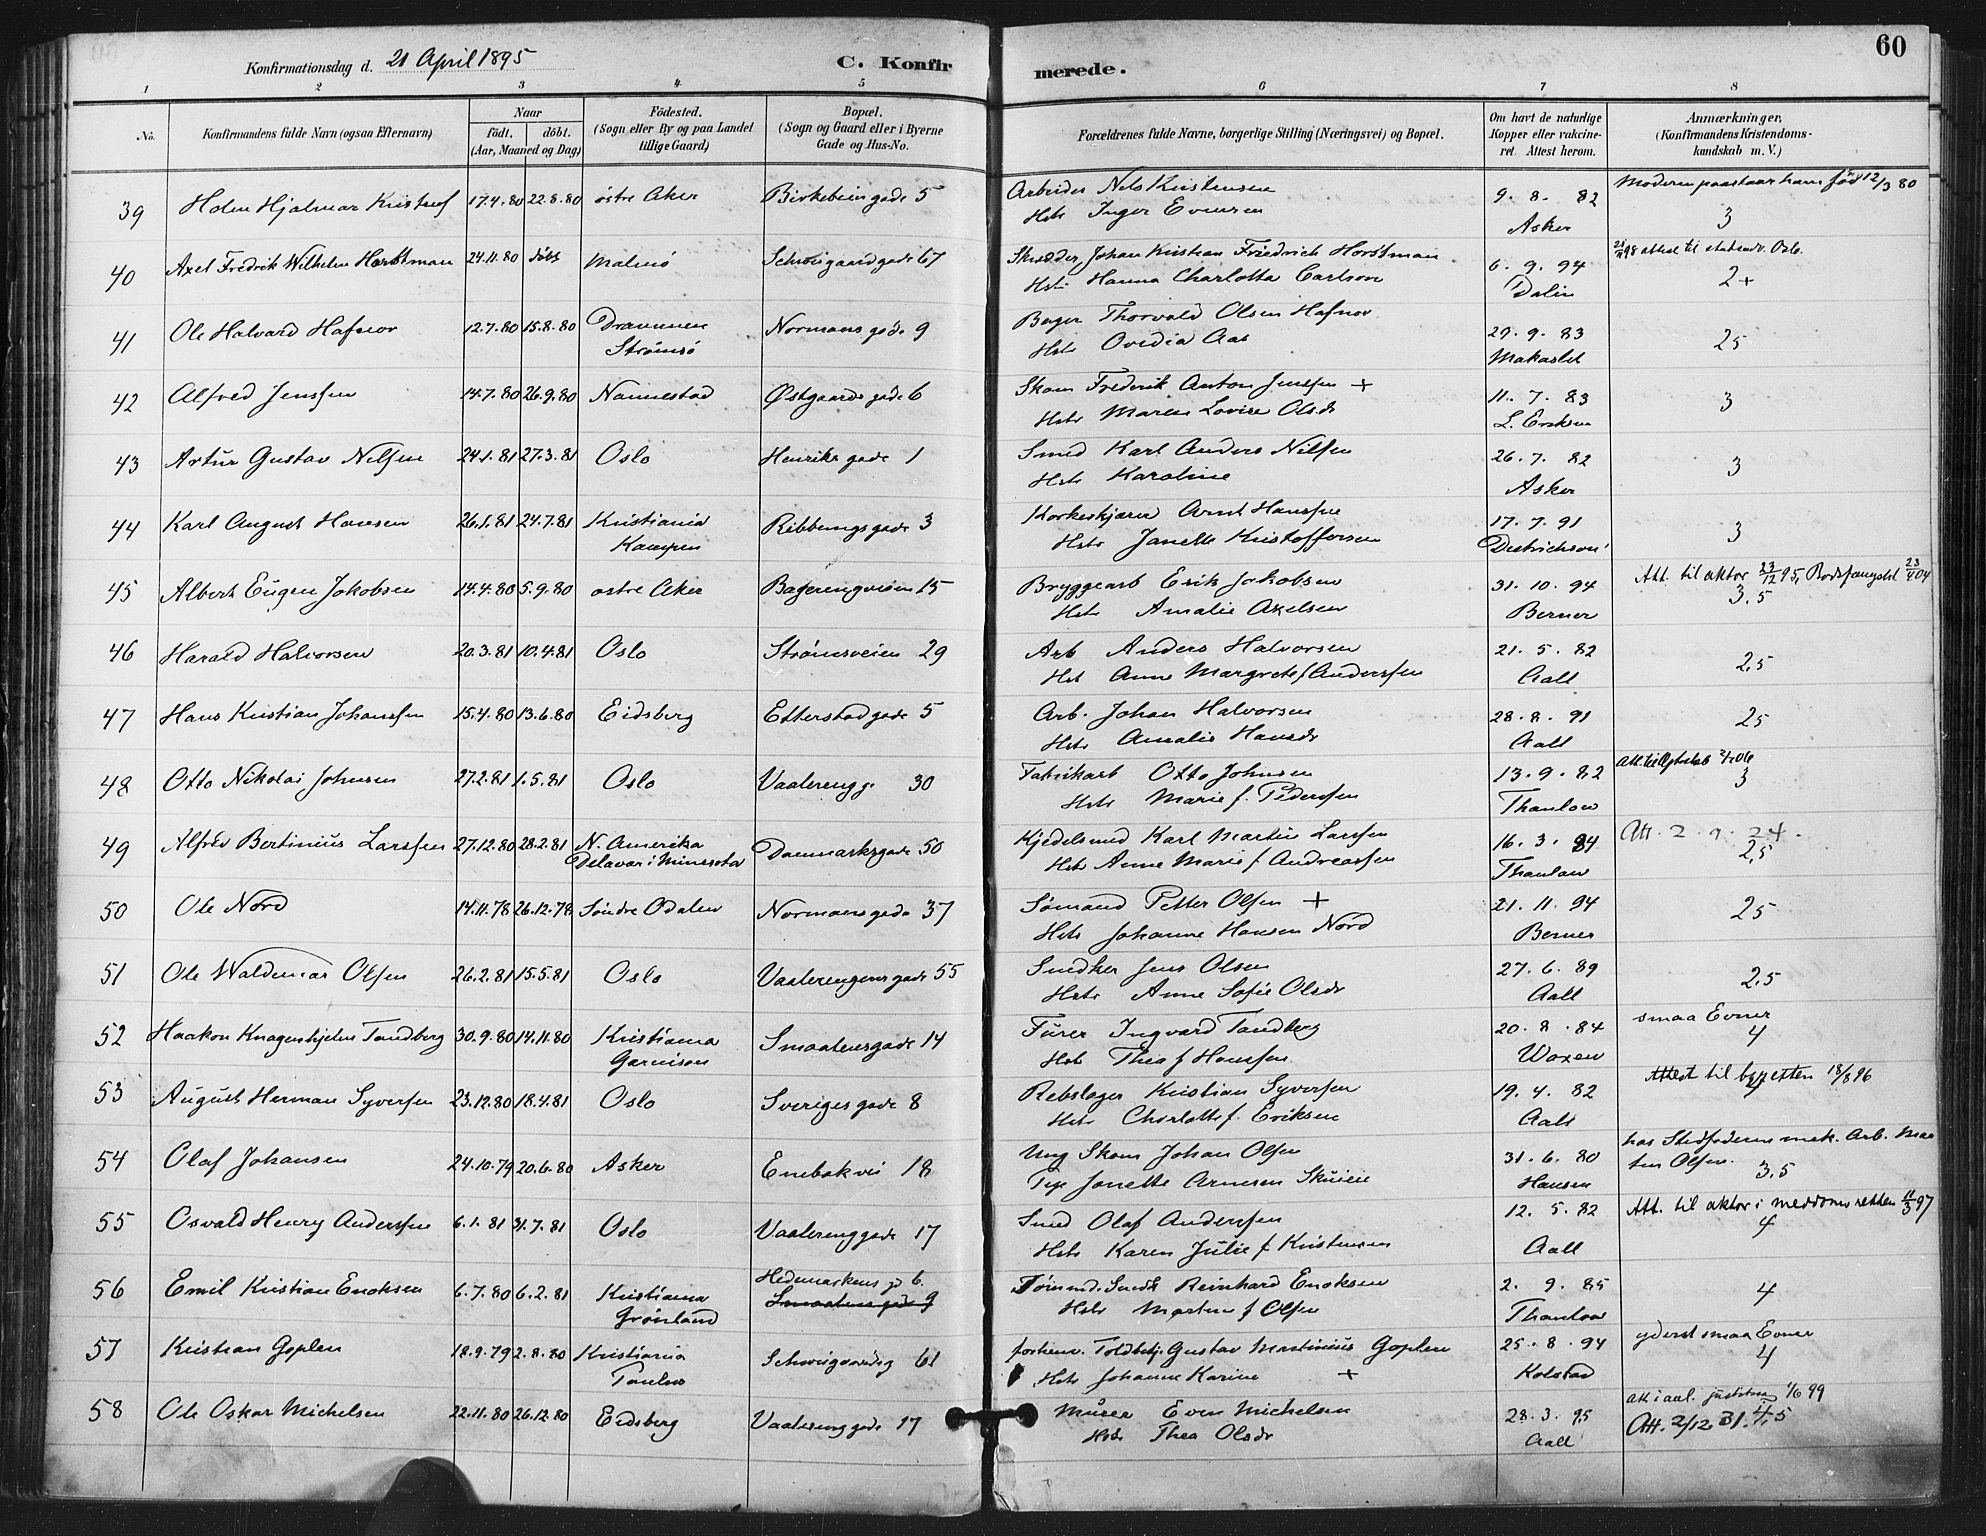 60
Konfirmationsdag d. 21 April 1895
C. Konfirmerede.
1 2 3 4 5 6 7 8
No.
Konfirmandens fulde Navn (ogsaa Efternavn)
Naar
födt. döbt.
(Aar, Maaned og Dag)
Födested.
(Sogn eller By og paa Landet
tillige Gaard)
Bopæl.
(Sogn og Gaard eller i Byerne
Gade og Hus-No.
Forældrenes fulde Navne, borgerlige Stilling (Næringsvei) og Bopæl.
Om havt de naturlige
Kopper eller vakcine-
ret. Attest herom.
Anmærkninger.
(Konfirmandens Kristendoms-
kundskab m. V.)
39 Holm Hjalmar Kristref 17.4.80 22.8.80 østre Aker Birkebeingade 5 Arbeider Nels Kristensen 9. 8. 82 Moderen paastaar ham født 12/3 80
Hstr Inger Evensen Asker 3
40 Axel Fredrik Wilhelm Horstman 24.11.80 døbt Malmø Schweigaardgade 67 Skrædder Johan Kristian Friedrich Horstman 6. 9. 94
Hstr Hanna Charlotta Carlson Dalin 2+
41 Ole Halvard Hafnor 12.7.80 15.8.80 Drammen Normans gade 9 Bager Thorvald Olsen Hafnor 29. 9. 83 25
Strømsø Hstr Ovidia Aas
42 Alfred Jenssen 14.7.80 26.9.80 Nannestad Østgaards gade 6 Skom Frederik Anton Jenssen + 11. 7. 83 3
Hstr Maren Lovise Olsdr L. Eriksen
43 Artur Gustav Nilsen 24.1.81 27.3.81 Oslo Henriks gade 1 Smed Karl Anders Nilsen 26. 7. 82 3
Hstr Karoline Asker
44 Karl August Hansen 26.1.81 24.7.81 Kristiania Ribbungsgade 3 Korkeskjærer Arnt Hanssen 17. 7. 91 3
Kampen Hstr Janette Kristoffersen Dietrichson
45 Albert Eugen Jakobsen 14.4.80 5.9.80 østre Aker Bagerengveien 15 Bryggearb Erik Jakobsen 31. 10. 94 Att. til aktor 23/12 95, Bodsfængslet 23/4 04
Hstr Amalie Axelsen Berner 3.5
46 Harald Halvorsen 20.3.81 10.4.81 Oslo Strømsveien 29 Arb Anders Halvorsen 21. 5. 82 2,5
Hst Anne Margrete f Anderssen Aall
47 Hans Kristian Johanssen 15.4.80 13.6.80 Eidsberg Etterstadgade 5 Arb. Johan Halvorsen 28. 8. 91 25
Hstr Amalie Hansdr Aall
48 Otto Nikolai Johnsen 27.2.81 1.5.81 Oslo Vaalerengg. 30 Fabrikarb Otto Johnsen 13. 9. 82
Hstr Marie f. Pederssen Thaulow 3
49 Alfred Bertinius Larssen 27.12.80 28.2.81 N. Amerika Danmarksgade 50 Kjedelsmed Karl Martin Larssen 16. 3. 84 Att. 2. 9. 24.
Delavar i Minesota Hstr Anne Marie f Andreassen Thaulow 2,5
50 Ole Nord 14.11.78 26.12.78 Søndre Odalen Normansgade 37 Sømand Petter Olsen + 21. 11. 94 25
Hstr Johanne Hansen Nord Berner
51 Ole Waldemar Olsen 26.2.81 15.5.81 Oslo Vaalerengens gade 55 Snedker Jens Olsen 27. 6. 89 2,5
Hstr Anne Sofie Olsdr Aall
52 Haakon Knagenhjelm Tandberg 30.9.80 14.11.80 Kristiania Smaalensgade 14 Furer Ingvard Tandberg 20. 8. 84 smaa Evner
Garnison Hstr Thea f Hanssen Woxen 4
53 August Herman Syversen 23.12.80 18.4.81 Oslo Sveriges gade 8 Rebslager Kristian Syversen 19. 4. 82 Attest til byretten 18/8 96
Hstr Charlotte f. Eriksen Aall
54 Olaf Johansen 24.10.79 20.6.80 Asker Enebakvei 18 Ung Skom Johan Olsen 31. 6. 80 hos Stedfaderen mek. Arb. Mar
Pige Janette Arnesen Skuieie Hansen ten Olsen. 3,5
55 Osvald Henry Anderssen 6.1.81 31.7.81 Oslo Vaalerenggade 17 Smed Olaf Anderssen 12. 5. 82 Att. til aktor i meddomsretten 11/3 97
Hstr Karen Julie f Kristensen Aall 4
56 Emil Kristian Enoksen 6.7.80 6.2.81 Kristiania Hedemarkens gd 6. Tømmd. Snedk Reinhard Enoksen 2. 9. 85 4
Grønland Smaalensgade 9 Hstr Martine f Olsen Thaulow
57 Kristian Goplen 18.9.79 2.8.80 Kristiania Schweigaardsg 61 forhenv. Toldbetj. Gustav Martinius Goplen 25. 8. 94 yderst smaa Evner
Hstr Johanne Karine + Kolstad 4
58 Ole Oskar Michelsen 22.11.80 26.12.80 Eidsberg Vaalerenggade 17 Murer Even Michelsen 28. 3. 95
Hstr Thea Olsdr Aall Att. 2/12 31.